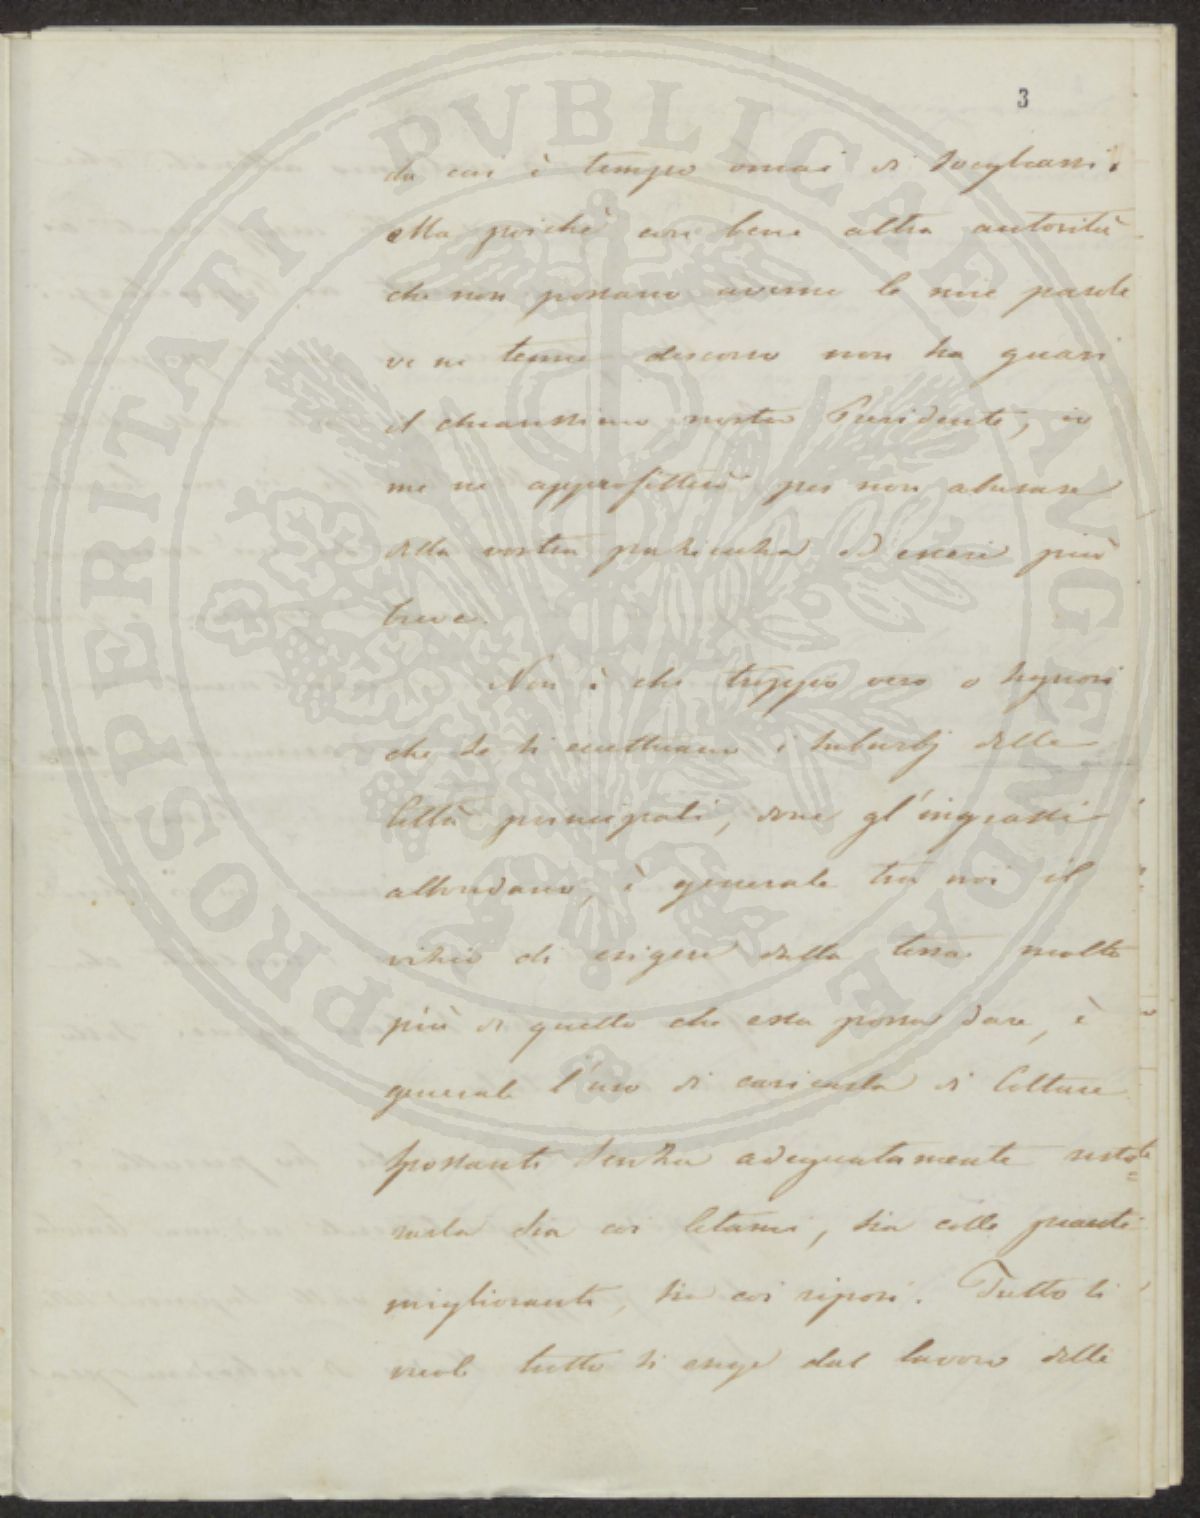 3
da cui è tempo omai di svegliarsi.
Ma poichè con bene altra autorità
che non possano averne le mie parole
ve ne tenne discorso non ha guari
il chiarissimo nostro Presidente, io
me ne approfitterò per non abusare
della vostra pazienza ed essere più
breve.
Non è che troppo vero o Signori
che se si eccettuano i suburbj delle
Città principali, dove gl'ingrassi
abbondano, è generale tra noi il
vizio di esigere dalla terra molto
più di quello che essa possa dare, è
generale l'uso di caricarla di Colture
spossanti senza adeguatamente risto=
rarla sia coi letami, sia colle piante
miglioranti, sia coi riposi. Tutto si
vuole tutto si esige dal lavoro delle
PROSPERITATI PVBLICAE AVGENDAE